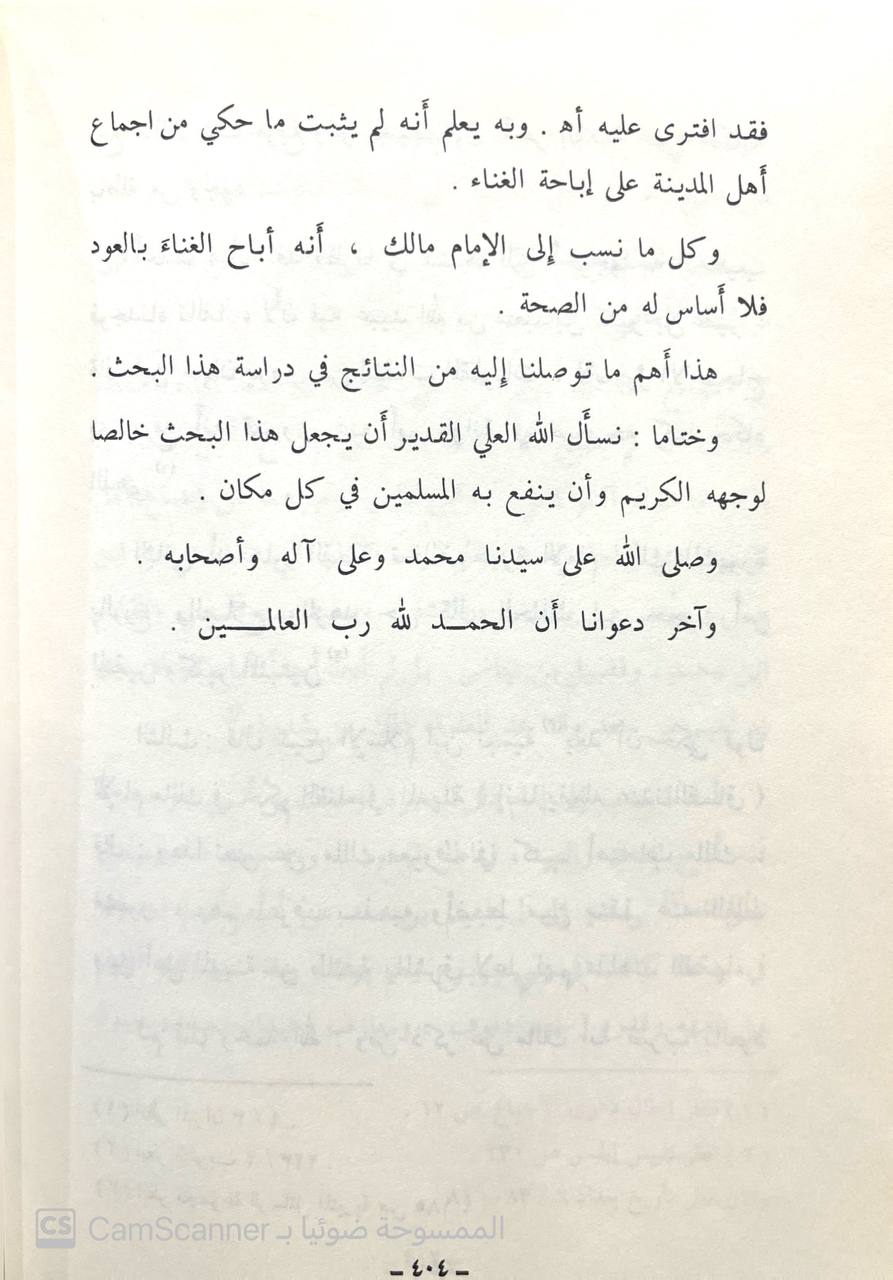 فقد افترى عليه أه . وبه يعلم أَنه لم يثبت ما حكي من اجماع
أَهل المدينة على إباحة الغناء .
وكل ما نسب إِلى الإمام مالك ، أَنه أباح الغناءَ بالعود
فلا أَساس له من الصحة .
هذا أَهم ما توصلنا إِليه من النتائج في دراسة هذا البحث .
وختاما : نسأَل الله العلي القدير أَن يجعل هذا البحث خالصا
لوجهه الكريم وأن ينفع به المسلمين في كل مكان .
وصلى الله على سيدنا محمد وعلى آله وأصحابه .
وآخر دعوانا أَن الحمــد لله رب العالمــــين .
CS CamScanner الممسوحة ضوئيا بـ
ـ ٤٠٤ ـ